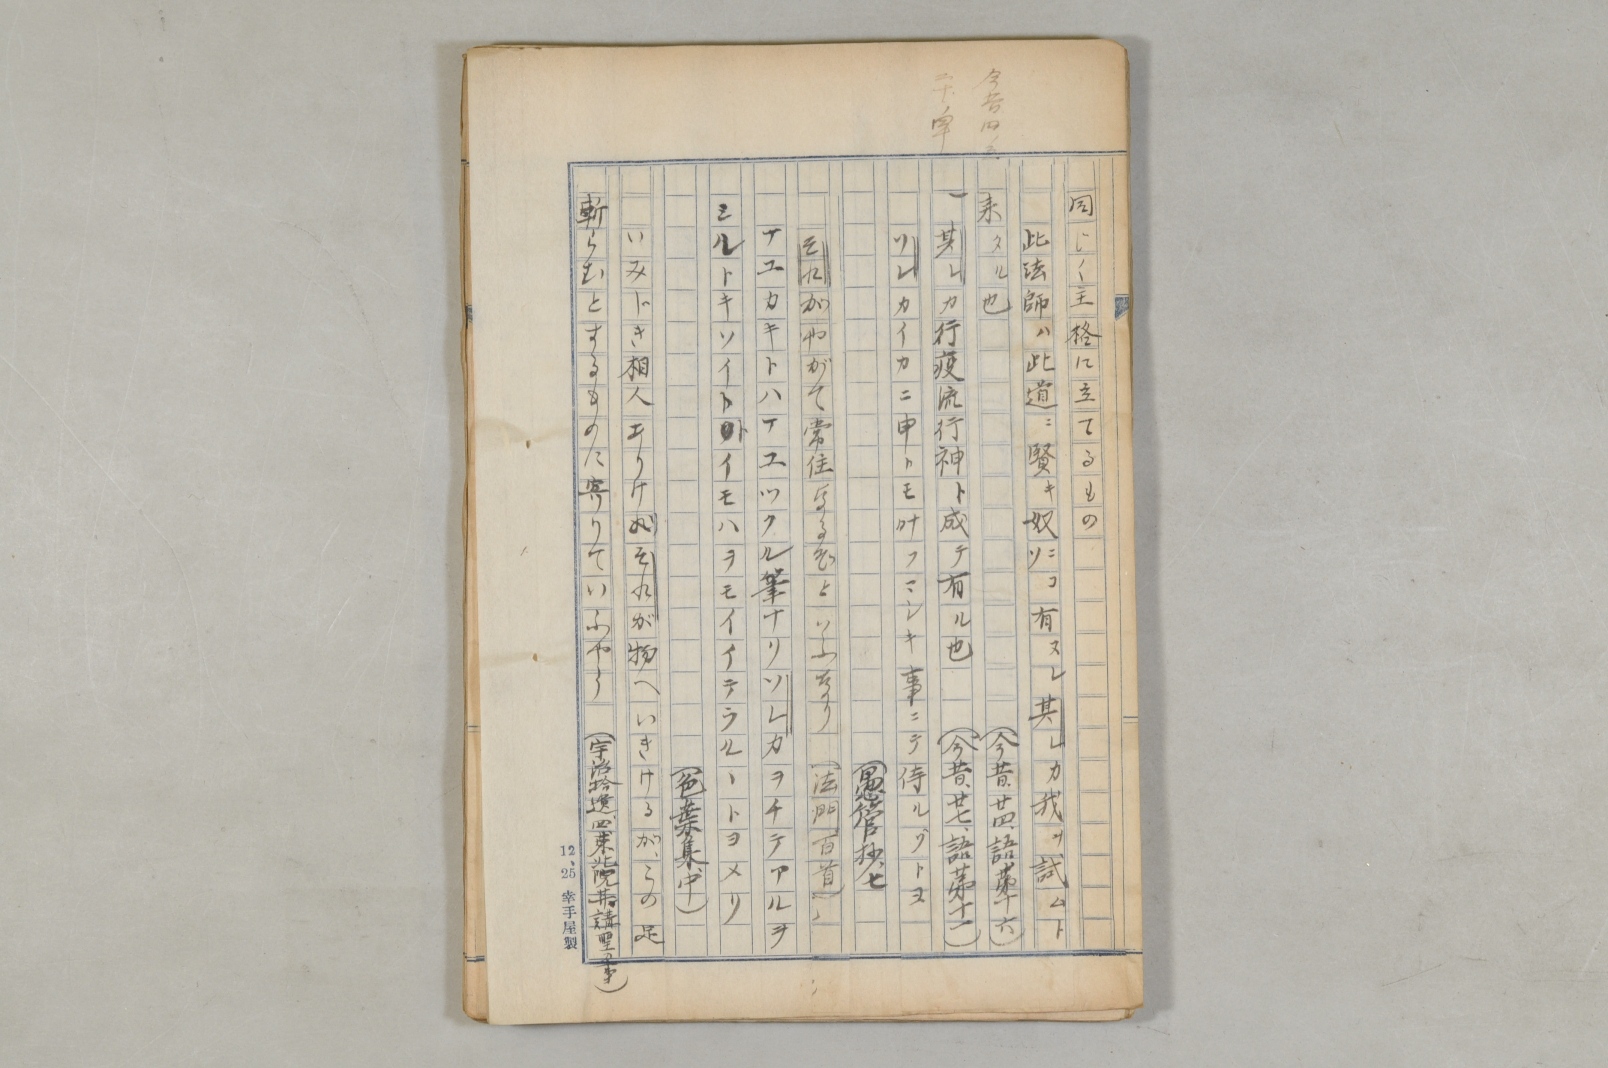 今昔四ノ
同じく主格に立てるもの
此法師ハ此道ニ賢キ奴ニコソ有ヌレ其レカ我ヲ試ムト
来タル也
(今昔、廿四、語第十六)
其レカ行疫流行神ト成テ有ル也 (今昔、廿七、語第十一)
ソレカイカニ申トモ叶フマシキ事ニテ侍ルゾトヨ
(愚管抄、七
それがやがて常住なるぞといふなり (法門百首)
ナエカキトハナエツクル筆ナリソレカヲチテアルヲ
ミルトキソイト外イモハヲモイイテラルヽトヨメリ
(色葉集、中)
いみじき相人ありけりそれが物へいきけるが、らの足
斬らむとするものに寄りていふやう (宇治拾遺、四、東北院井講聖事)
12、25 幸手屋製